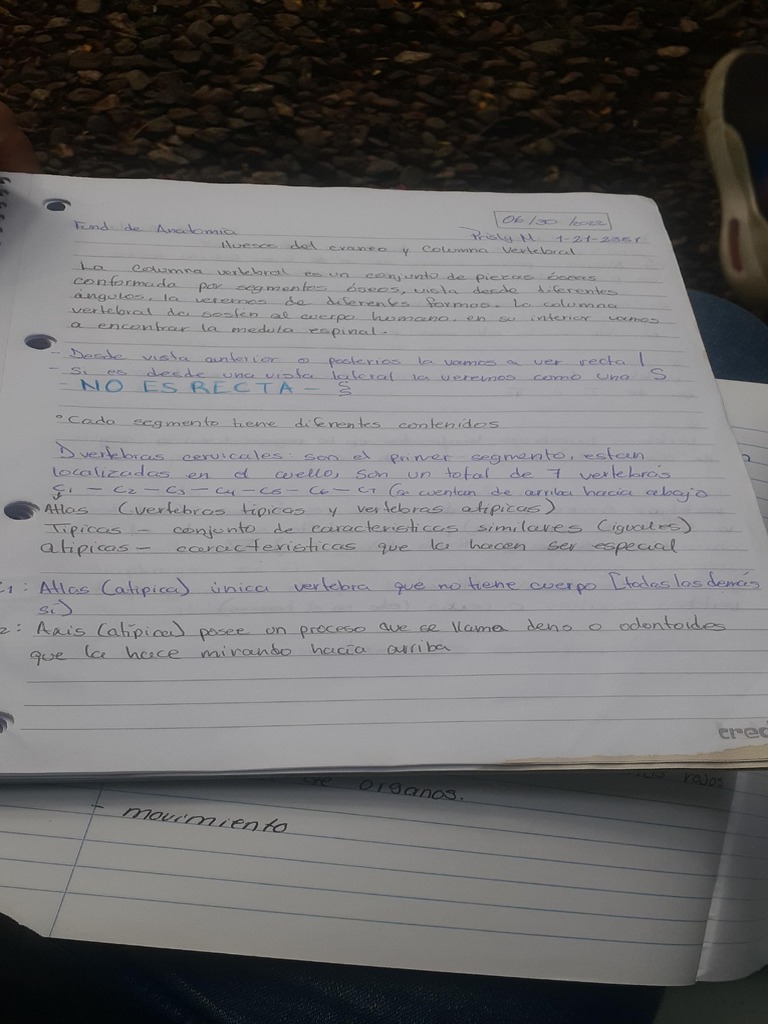 06/30/2022
Fund de Anatomia Prisly M. 1-21-
Huesos del craneo y columna vertebral
La columna vertebral es un conjunto de piezas óseas
conformada por segmentos óseos, vista desde diferentes
ángulos, la veremos de diferentes formas. La columna
vertebral da sostén al cuerpo humano, en su interior vamos
a encontrar la medula espinal.
- Desde vista anterior o posterior la vamos a ver recta |
- Si es desde una vista lateral la veremos como una S
- NO ES RECTA -
° Cada segmento tiene diferentes contenidos
D vertebras cervicales: son el primer segmento, estan
localizadas en el cuello, son un total de 7 vertebras
C1 - C2 - C3 - C4 - C5 - C6 - C7 (se cuentan de arriba hacia abajo
Atlas (vertebras tipicas y vertebras atipicas)
Tipicas - conjunto de caracteristicas similares (iguales)
atipicas - caracteristicas que la hacen ser especial
C1: Atlas (atipica) única vertebra que no tiene cuerpo [todas las demás
si)
2: Axis (atípica) posee un proceso que se llama dens o odontoides
que la hace mirando hacía arriba
cred
organos.
- movimiento